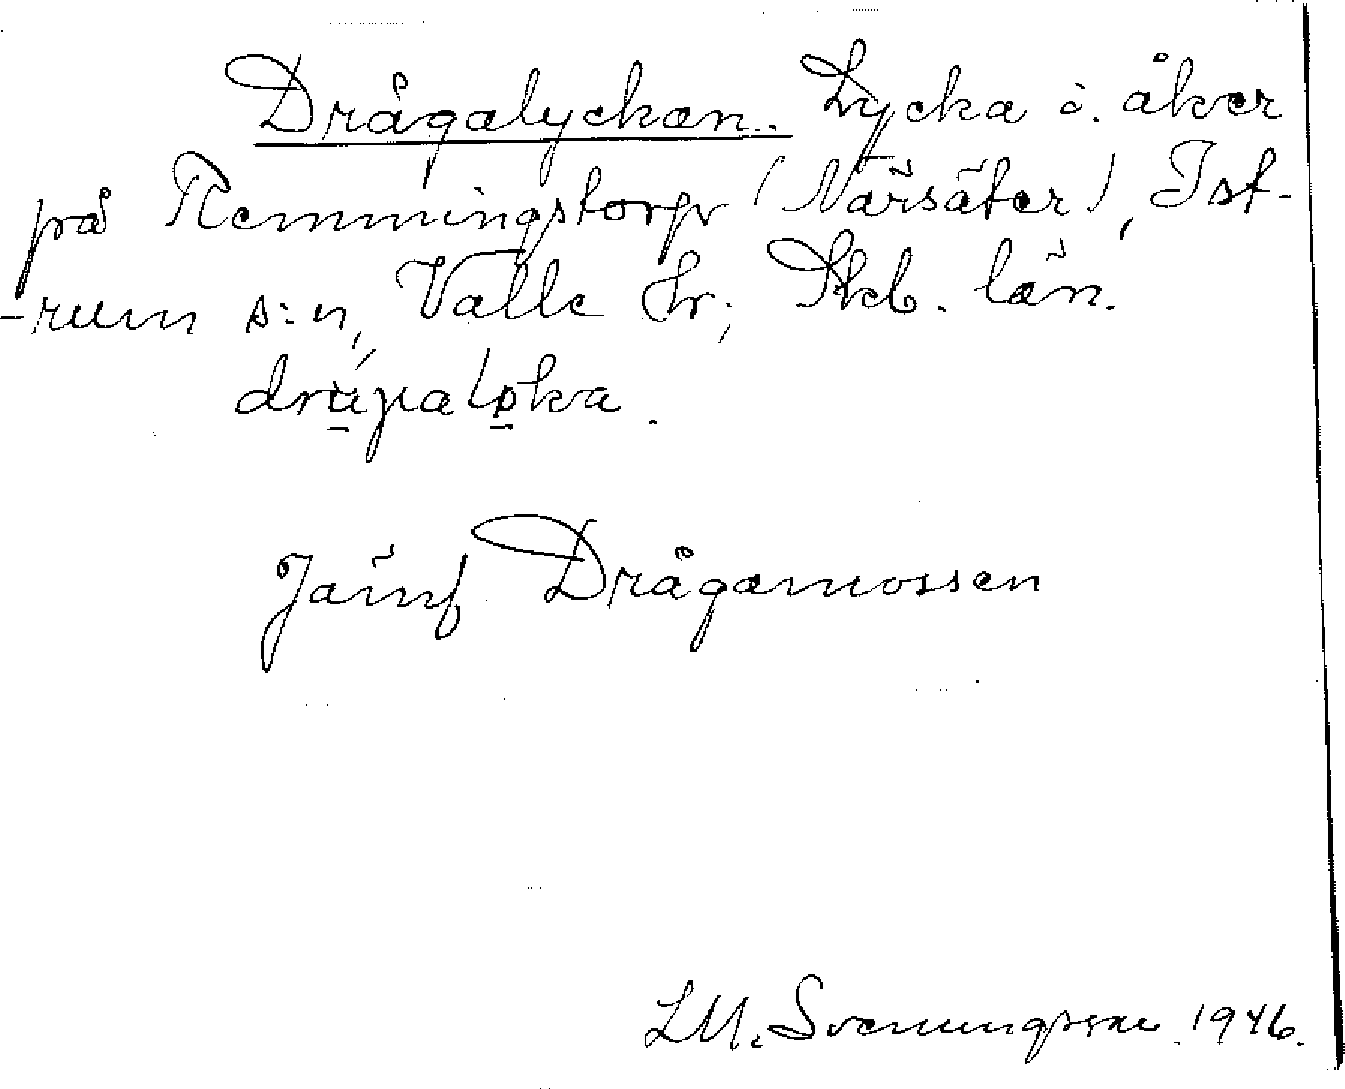 Drågalyckan. Lycka o. åker
på Remmingstorp (Närsäter), Ist-
-rum s:n, Valle hr; Skb. län.
Jämf Drågamossen
LM. Svenungsson 1946.